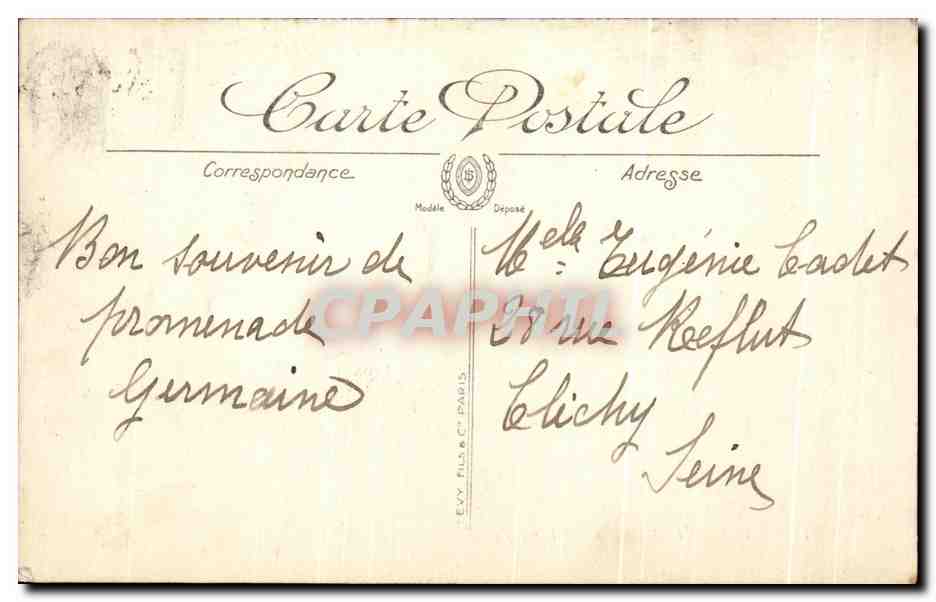 Carte Postale
Correspondance
Adresse
Modèle Déposé
Bon souvenir de
promenade
Germaine
Eugénie Cadet
28 rue
Clichy
Seine
LEVY FILS & Cie PARIS
CPAPHIL